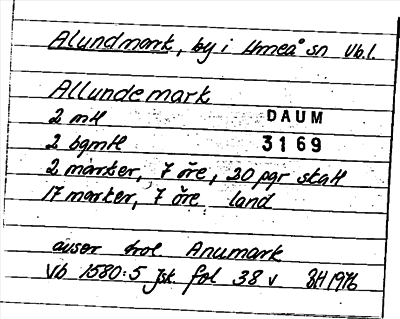 Alundmark, by i Umeå sn Vb.l.
Allundemark
2 mtl
DAUM
2 bgmtl
3169
2 marker, 7 öre, 20 pgr skatt
17 marker, 7 öre land
avser trol Anumark
Vb 1580:5 Jsk. fol 38 v BH 1976